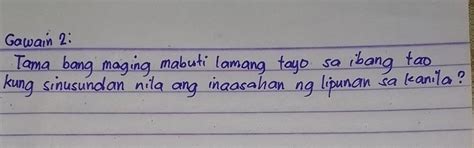 Gawain 2:
Tama bang maging mabuti lamang tayo sa ibang tao
kung sinusundan nila ang inaasahan ng lipunan sa kanila?